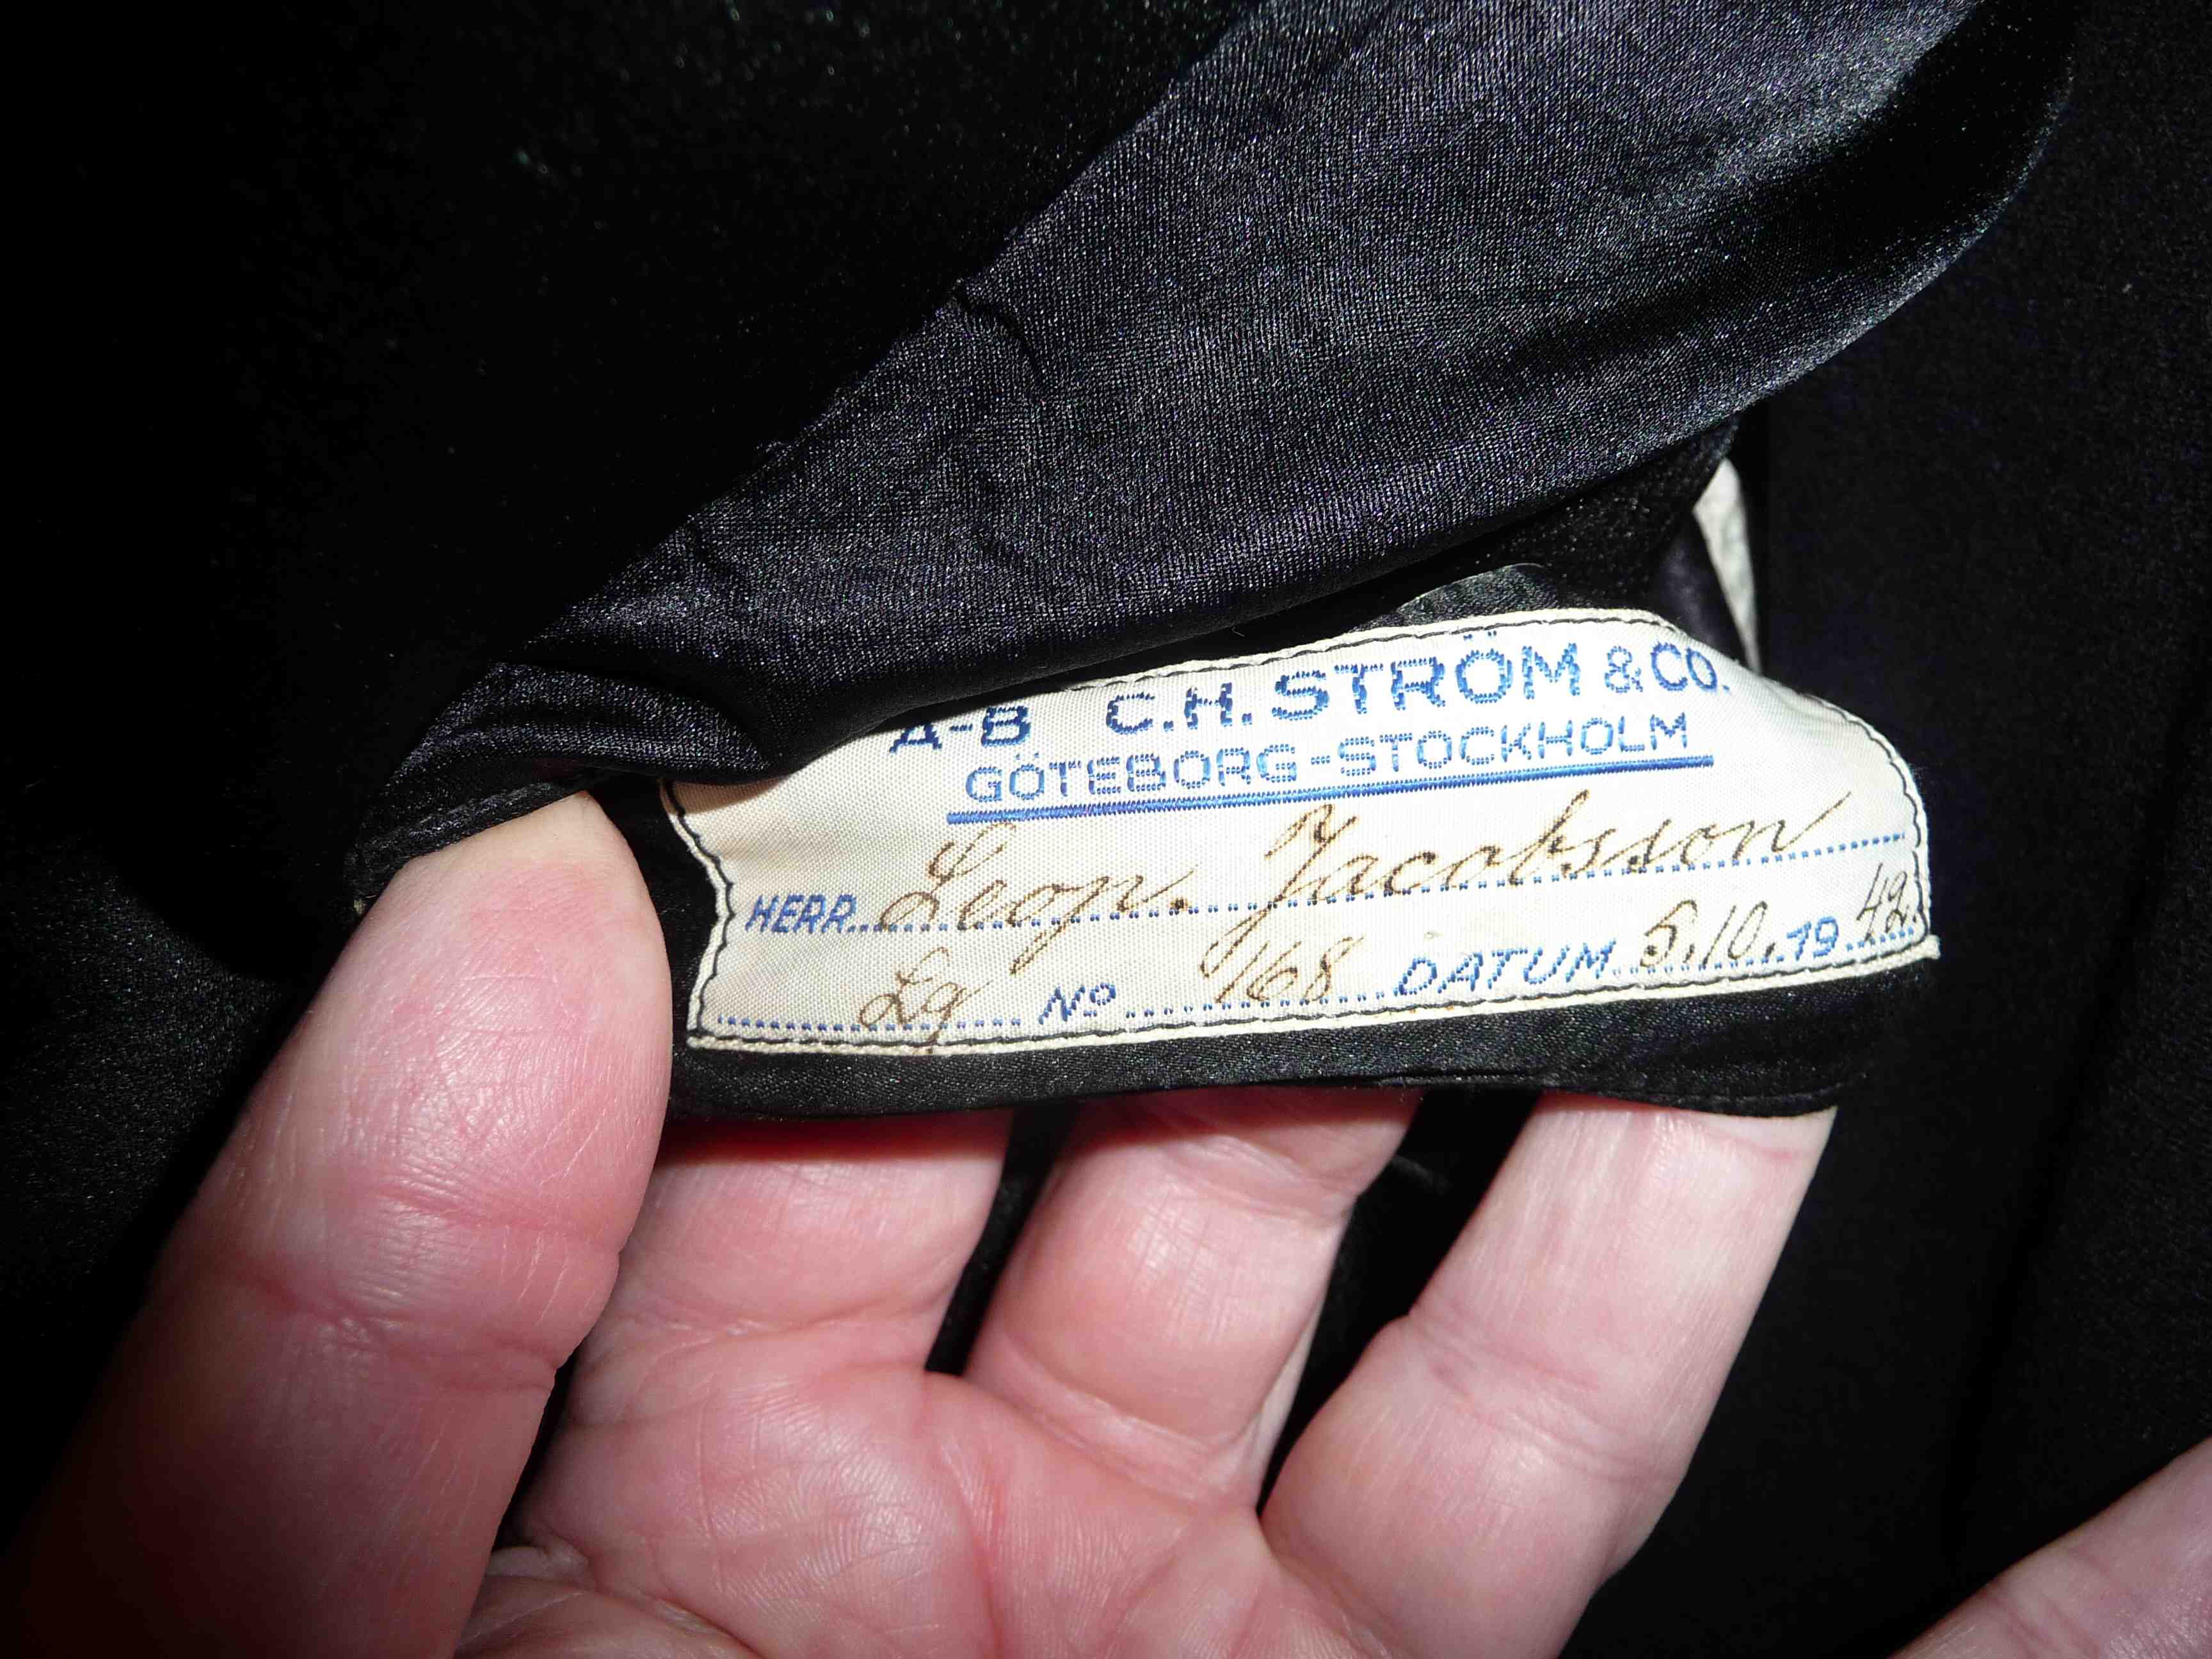 A-B C.H. STRÖM & CO.
GÖTEBORG-STOCKHOLM
HERR Leop. Jacobsson
Lg No 168 DATUM 5.10.1942.